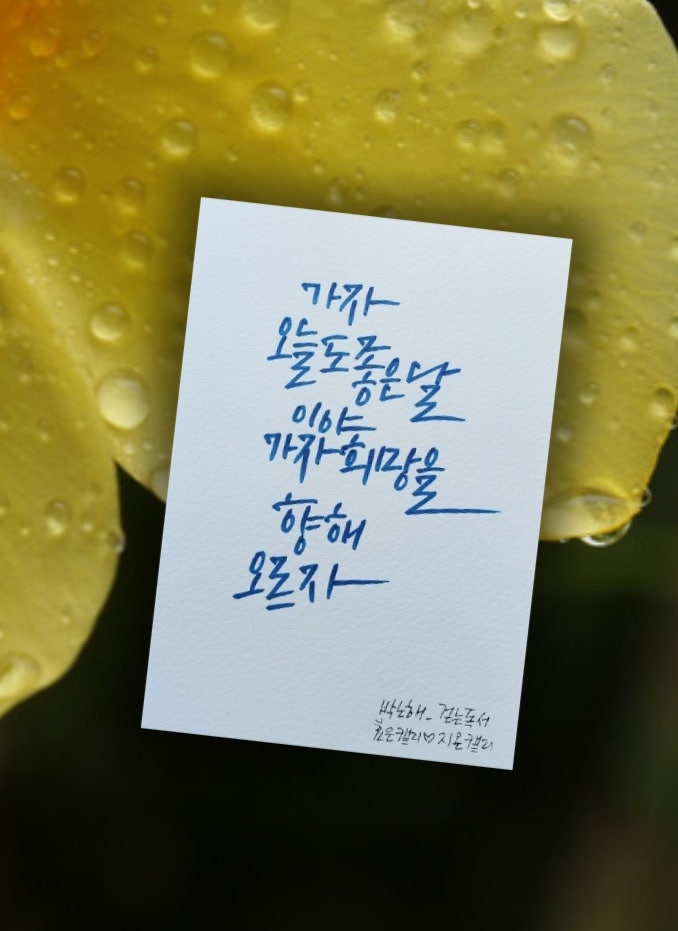 가자
오늘도좋은날
이야
가자희망을
향해
오르자
박노해_걷는독서
캘리♡지온캘리